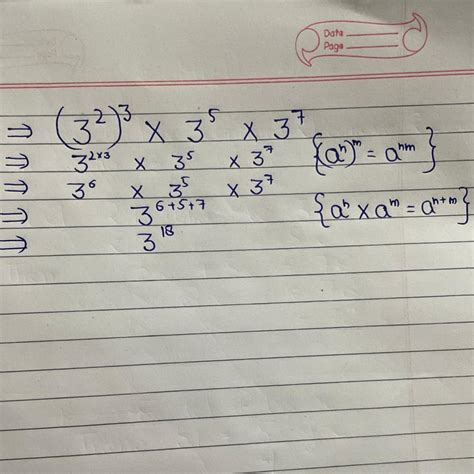 Date
Page
⇒ (3²)³ × 3⁵ × 3⁷
⇒ 3²ˣ³ × 3⁵ × 3⁷ {(aⁿ)ᵐ = aⁿᵐ}
⇒ 3⁶ × 3⁵ × 3⁷
⇒ 3⁶⁺⁵⁺⁷ {aⁿ × aᵐ = aⁿ⁺ᵐ}
⇒ 3¹⁸